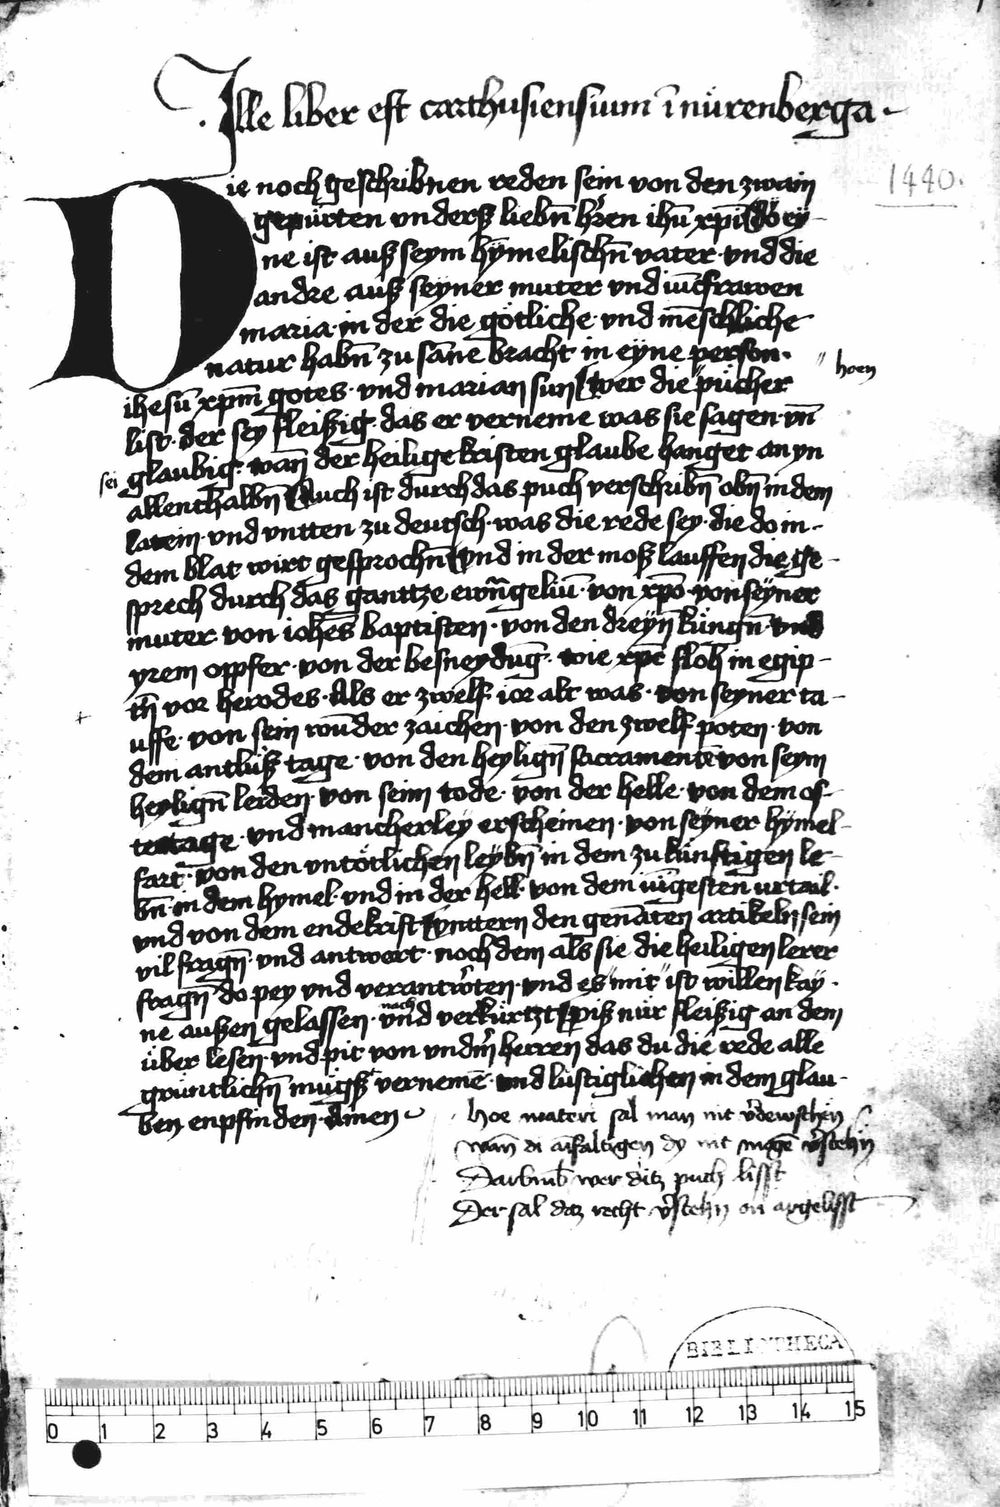 Iste liber est carthusiensium ī nürenberga
1440.
Die noch geschribnen reden sein von den zwain
gepürten vnderß liebn̄ hr̄en ihū xp̄i dö ey-
ne ist auß seym hymelischn̄ vater · vnd die
andre auß seyner muter vnd iūcfrawen
maria · in der die götliche · vnd mēschliche
natur habn̄ zu sāne bracht in eyne person ·
" hoen
ihesū xp̄m gotes · vnd marian sun Wer die "pücher
list · der sey fleißig · das er verneme was sie sagen · vn̄
sei glaubig · wan̄ der heilige kristen glaube hanget an yn
allenthalbn̄ Auch ist durch das puch verschribn̄ obn̄ in dem
latein · vnd vntten zu deutsch · was die rede sey · die do in-
dem blat wirt gesprochn̄ Vnd in der moß lauffen die ge-
sprech durch das ganttze ewāgeliū · von xp̄o · von seyner
muter von ioh̄es baptisten · von den dreyn̄ küngn̄ · vnd
yrem oppfer · von der besneydūg · wie xp̄c floh in egip-
tn̄ vor herodes · Als er zwelf ior alt was · von seyner ta-
uffe · von sein wūder zaichen · von den zwelf poten · von
dem antlüß tage · von den heylign̄ sacramentē von seym
heylign̄ leiden · von seim tode · von der helle · von dem os-
tertage · vnd mancherley erscheinen · von seyner hymel-
fart · von den vntötlichen leybn̄ in dem zu künftigen le-
bn̄ in dem hymel · vnd in der hell · von dem iūgesten vrtail ·
vnd von dem endekrist Vnttern den genāten artikeln sein
vil fragn̄ · vnd antwort · noch dem als sie die heiligen lerer
fragn̄ do pey vnd verantwr̄ten · vnd es "mit" ist willen kay ·
ne außen gelassen · nach vnd verkürtzt Piß nür fleißig an dem
über lesen · vnd pit von vndn̄ herren das du die rede alle
gruntlichn̄ mügst vernemē · vnd lüstiglichen in dem glau-
ben enpfinden · Amen
hoe materi sal man nit v̄dewtschen
wan̄ di aīfaltigen dy nit mogē v̄stehn
Darumb wer ditz puch lisst
Der sal daz recht v̄stehn on argelisst
BIBLIOTHECA
0 1 2 3 4 5 6 7 8 9 10 11 12 13 14 15